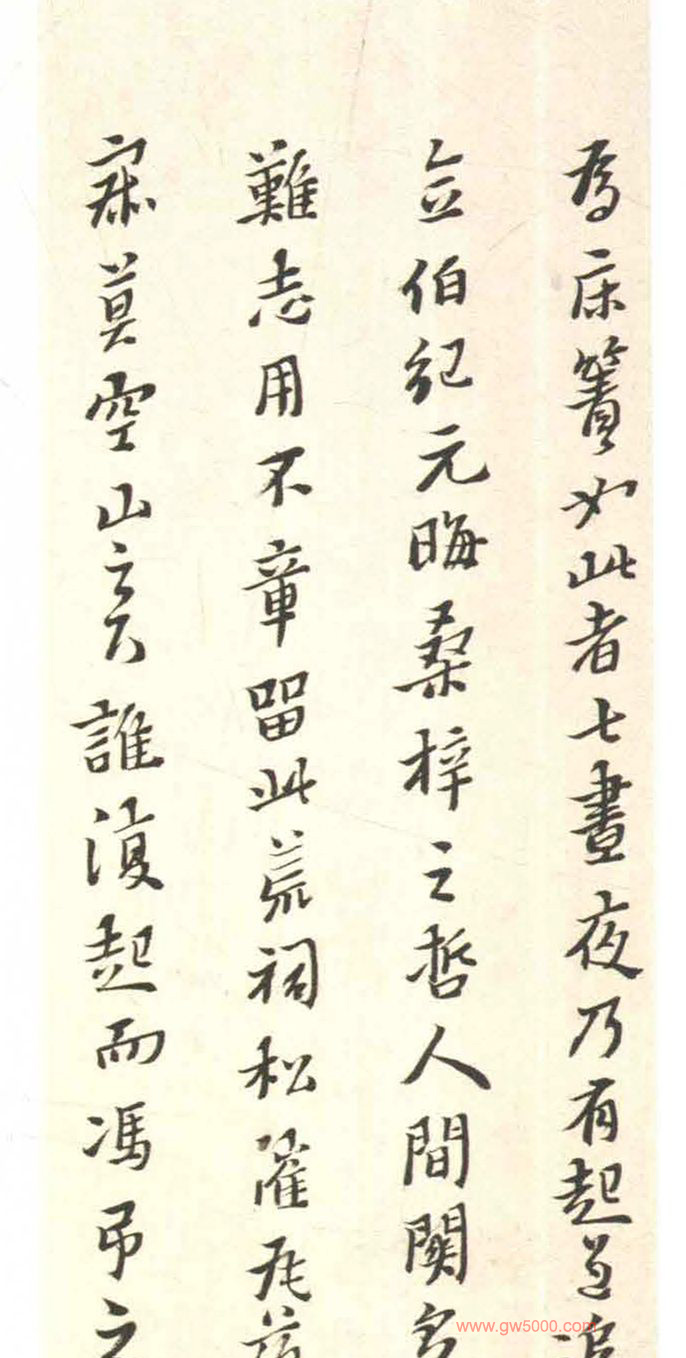 為床簀如此者七晝夜乃有起色
立伯紀元晦桑梓之哲人間關多
難志用不章留此荒祠松摧瓦落
寂莫空山之穴誰復起而馮弔之
www.gw5000.com